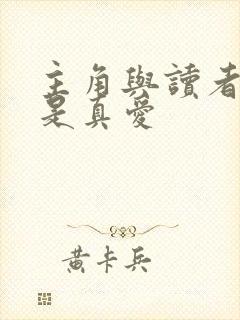 主角與讀者
是真愛
黃卡兵